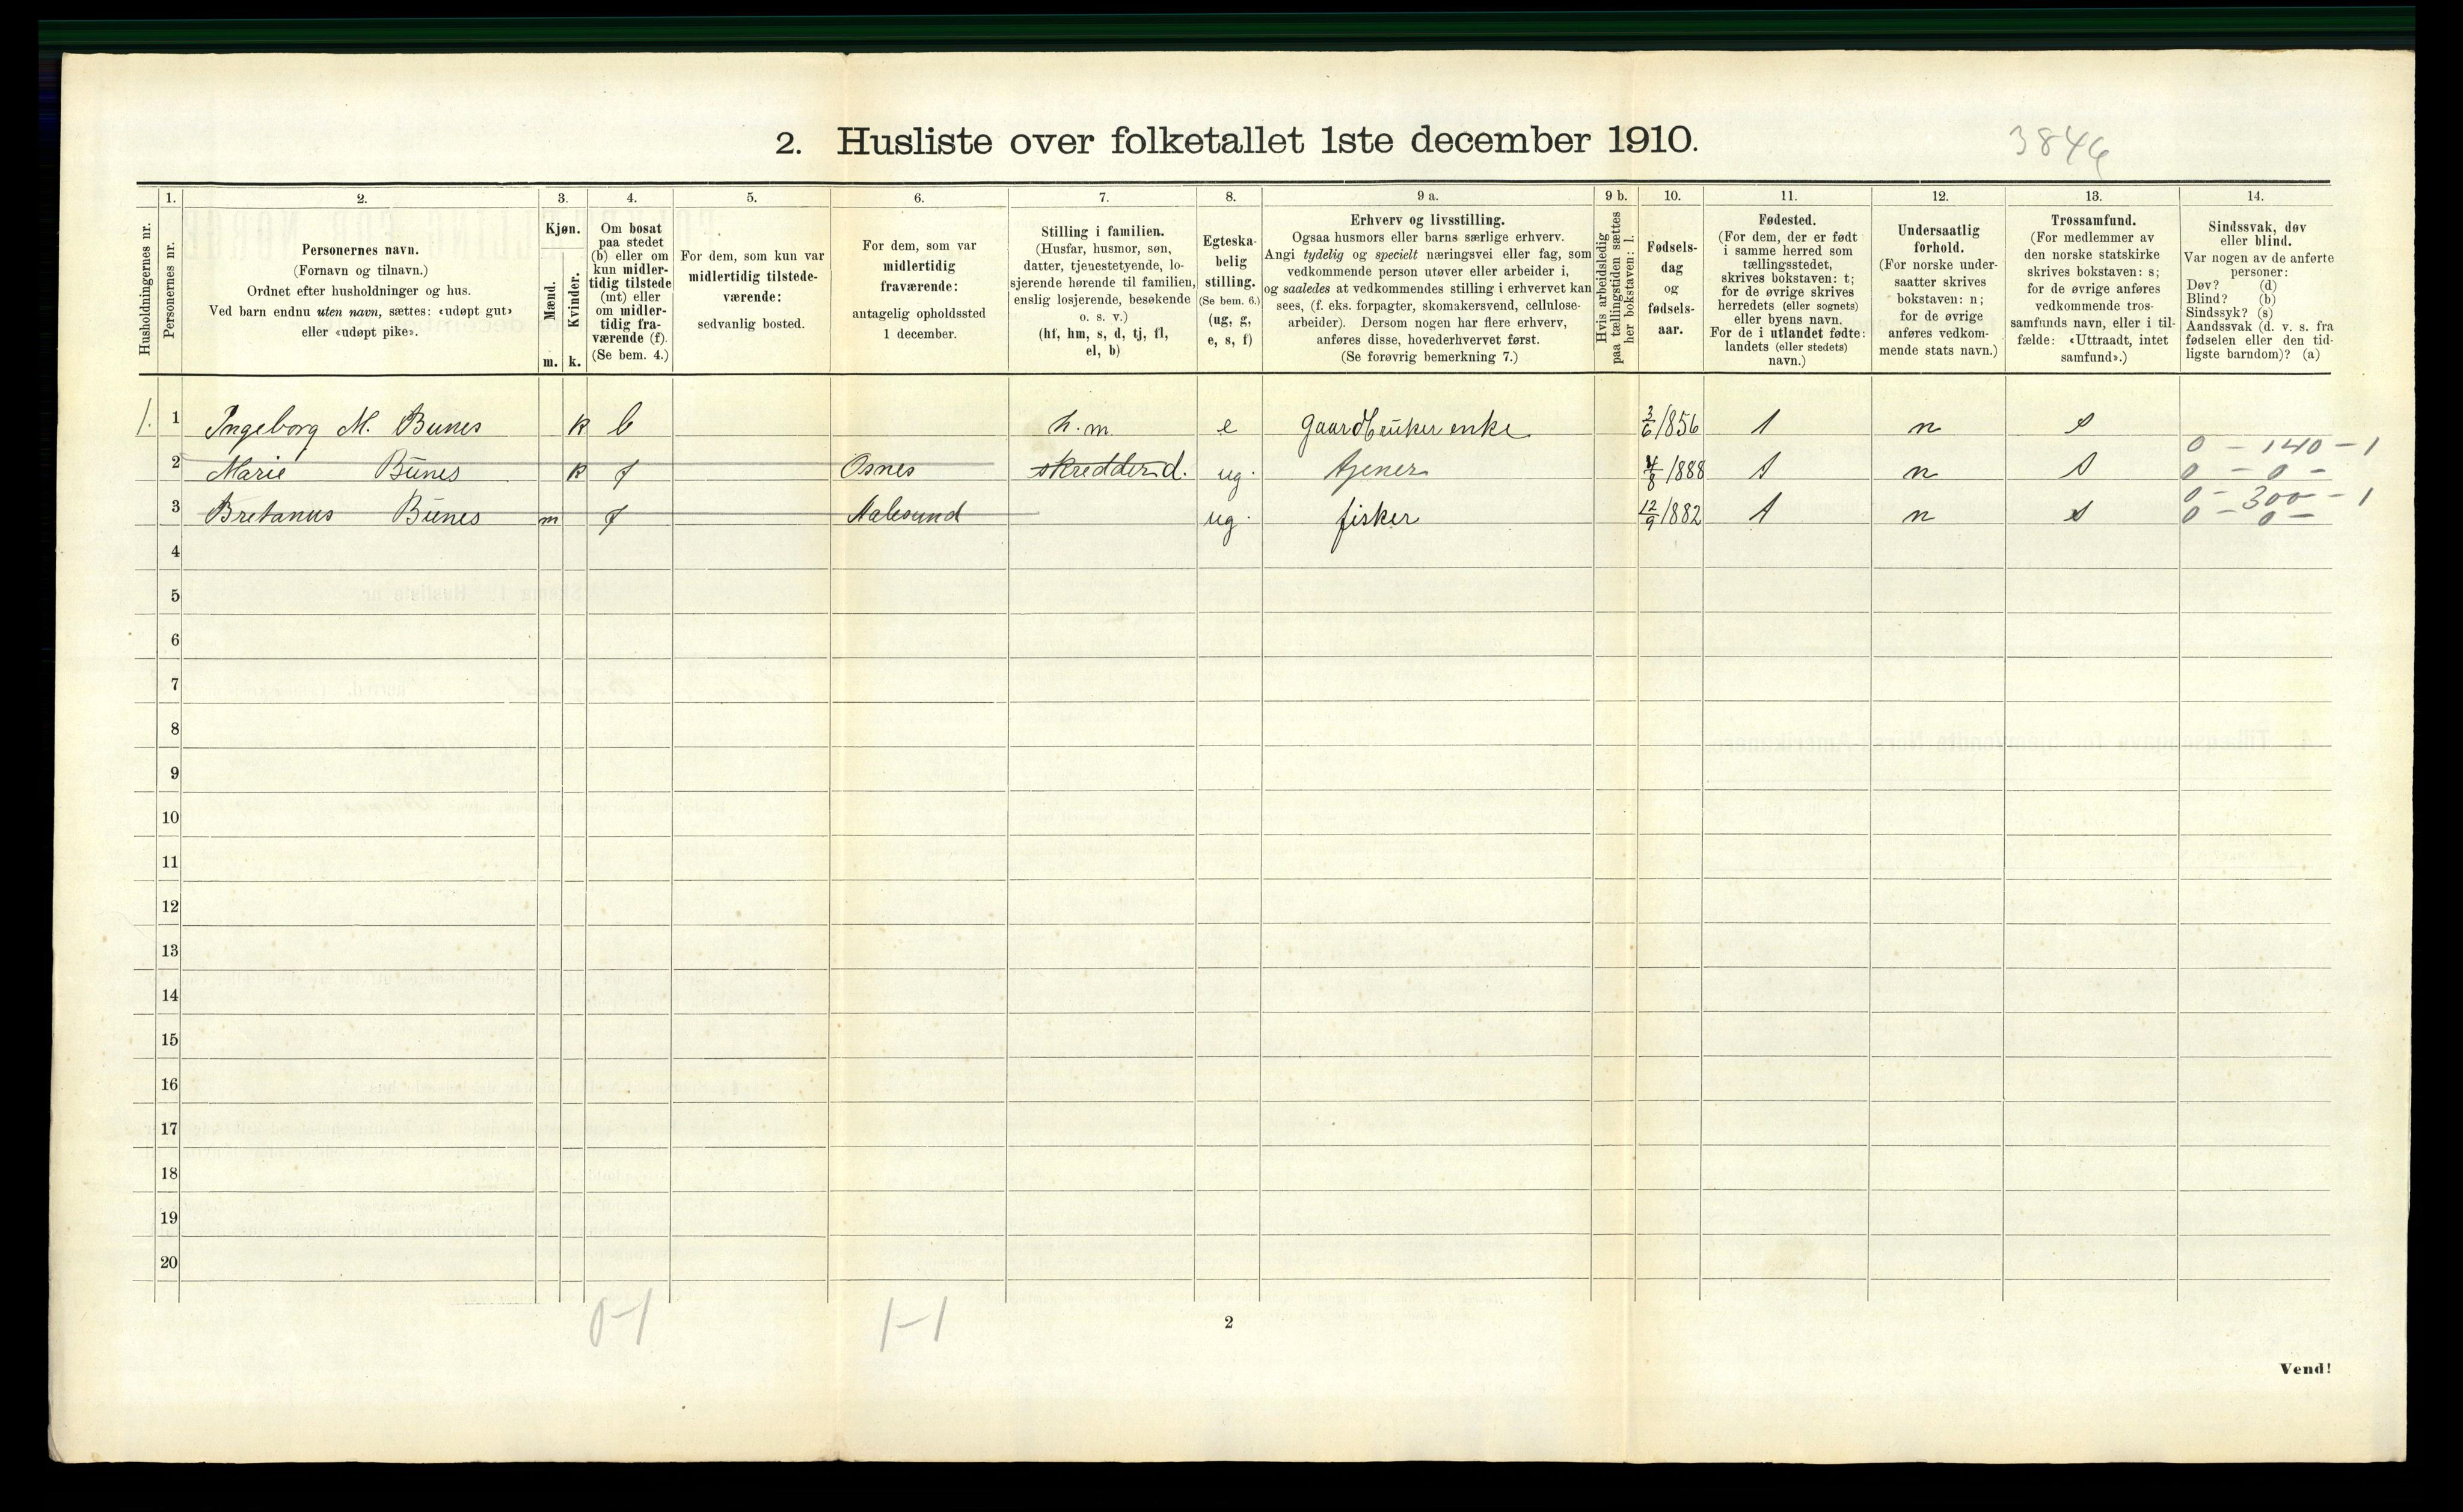 2. Husliste over folketallet 1ste december 1910.
3846
1. 2. 3. 4. 5. 6. 7. 8. 9 a. 9 b. 10. 11. 12. 13. 14.
Husholdningernes nr.
Personernes nr.
Personernes navn.
(Fornavn og tilnavn.)
Ordnet efter husholdninger og hus.
Ved barn endnu uten navn, sættes: «udøpt gut»
eller «udøpt pike».
Kjøn.
Mænd.
Kvinder.
m. k.
Om bosat
paa stedet
(b) eller om
kun midler-
tidig tilstede
(mt) eller
om midler-
tidig fra-
værende (f).
(Se bem. 4.)
For dem, som kun var
midlertidig tilstede-
værende:
sedvanlig bosted.
For dem, som var
midlertidig
fraværende:
antagelig opholdssted
1 december.
Stilling i familien.
(Husfar, husmor, søn,
datter, tjenestetyende, lo-
sjerende hørende til familien,
enslig losjerende, besøkende
o. s. v.)
(hf, hm, s, d, tj, fl,
el, b)
Egteska-
belig
stilling.
(Se bem. 6.)
(ug, g,
e, s, f)
Erhverv og livsstilling.
Ogsaa husmors eller barns særlige erhverv.
Angi tydelig og specielt næringsvei eller fag, som
vedkommende person utøver eller arbeider i,
og saaledes at vedkommendes stilling i erhvervet kan
sees, (f. eks. forpagter, skomakersvend, cellulose-
arbeider). Dersom nogen har flere erhverv,
anføres disse, hovederhvervet først.
(Se forøvrig bemerkning 7.)
Hvis arbeidsledig
paa tællingstiden sættes
her bokstaven: l.
Fødsels-
dag
og
fødsels-
aar.
Fødested.
(For dem, der er født
i samme herred som
tællingsstedet,
skrives bokstaven: t;
for de øvrige skrives
herredets (eller sognets)
eller byens navn.
For de i utlandet fødte:
landets (eller stedets)
navn.)
Undersaatlig
forhold.
(For norske under-
saatter skrives
bokstaven: n;
for de øvrige
anføres vedkom-
mende stats navn.)
Trossamfund.
(For medlemmer av
den norske statskirke
skrives bokstaven: s;
for de øvrige anføres
vedkommende tros-
samfunds navn, eller i til-
fælde: «Uttraadt, intet
samfund».)
Sindssvak, døv
eller blind.
Var nogen av de anførte
personer:
Døv? (d)
Blind? (b)
Sindssyk? (s)
Aandssvak (d. v. s. fra
fødselen eller den tid-
ligste barndom)? (a)
1. 1 Ingeborg M. Bunes k b h.m. e Gaardbruker enke 3/6 1856 t n s
0 - 140 - 1
2 Marie Bunes k f Osnes skredder d. ug. tjener 4/8 1888 t n s 0 - 0 -
0 - 300 - 1
3 Bretanus Bunes m f Aalesund ug. fisker 12/9 1882 t n s 0 - 0 -
4
5
6
7
8
9
10
11
12
13
14
15
16
17
18
19
20
0-1 1-1
2
Vend!